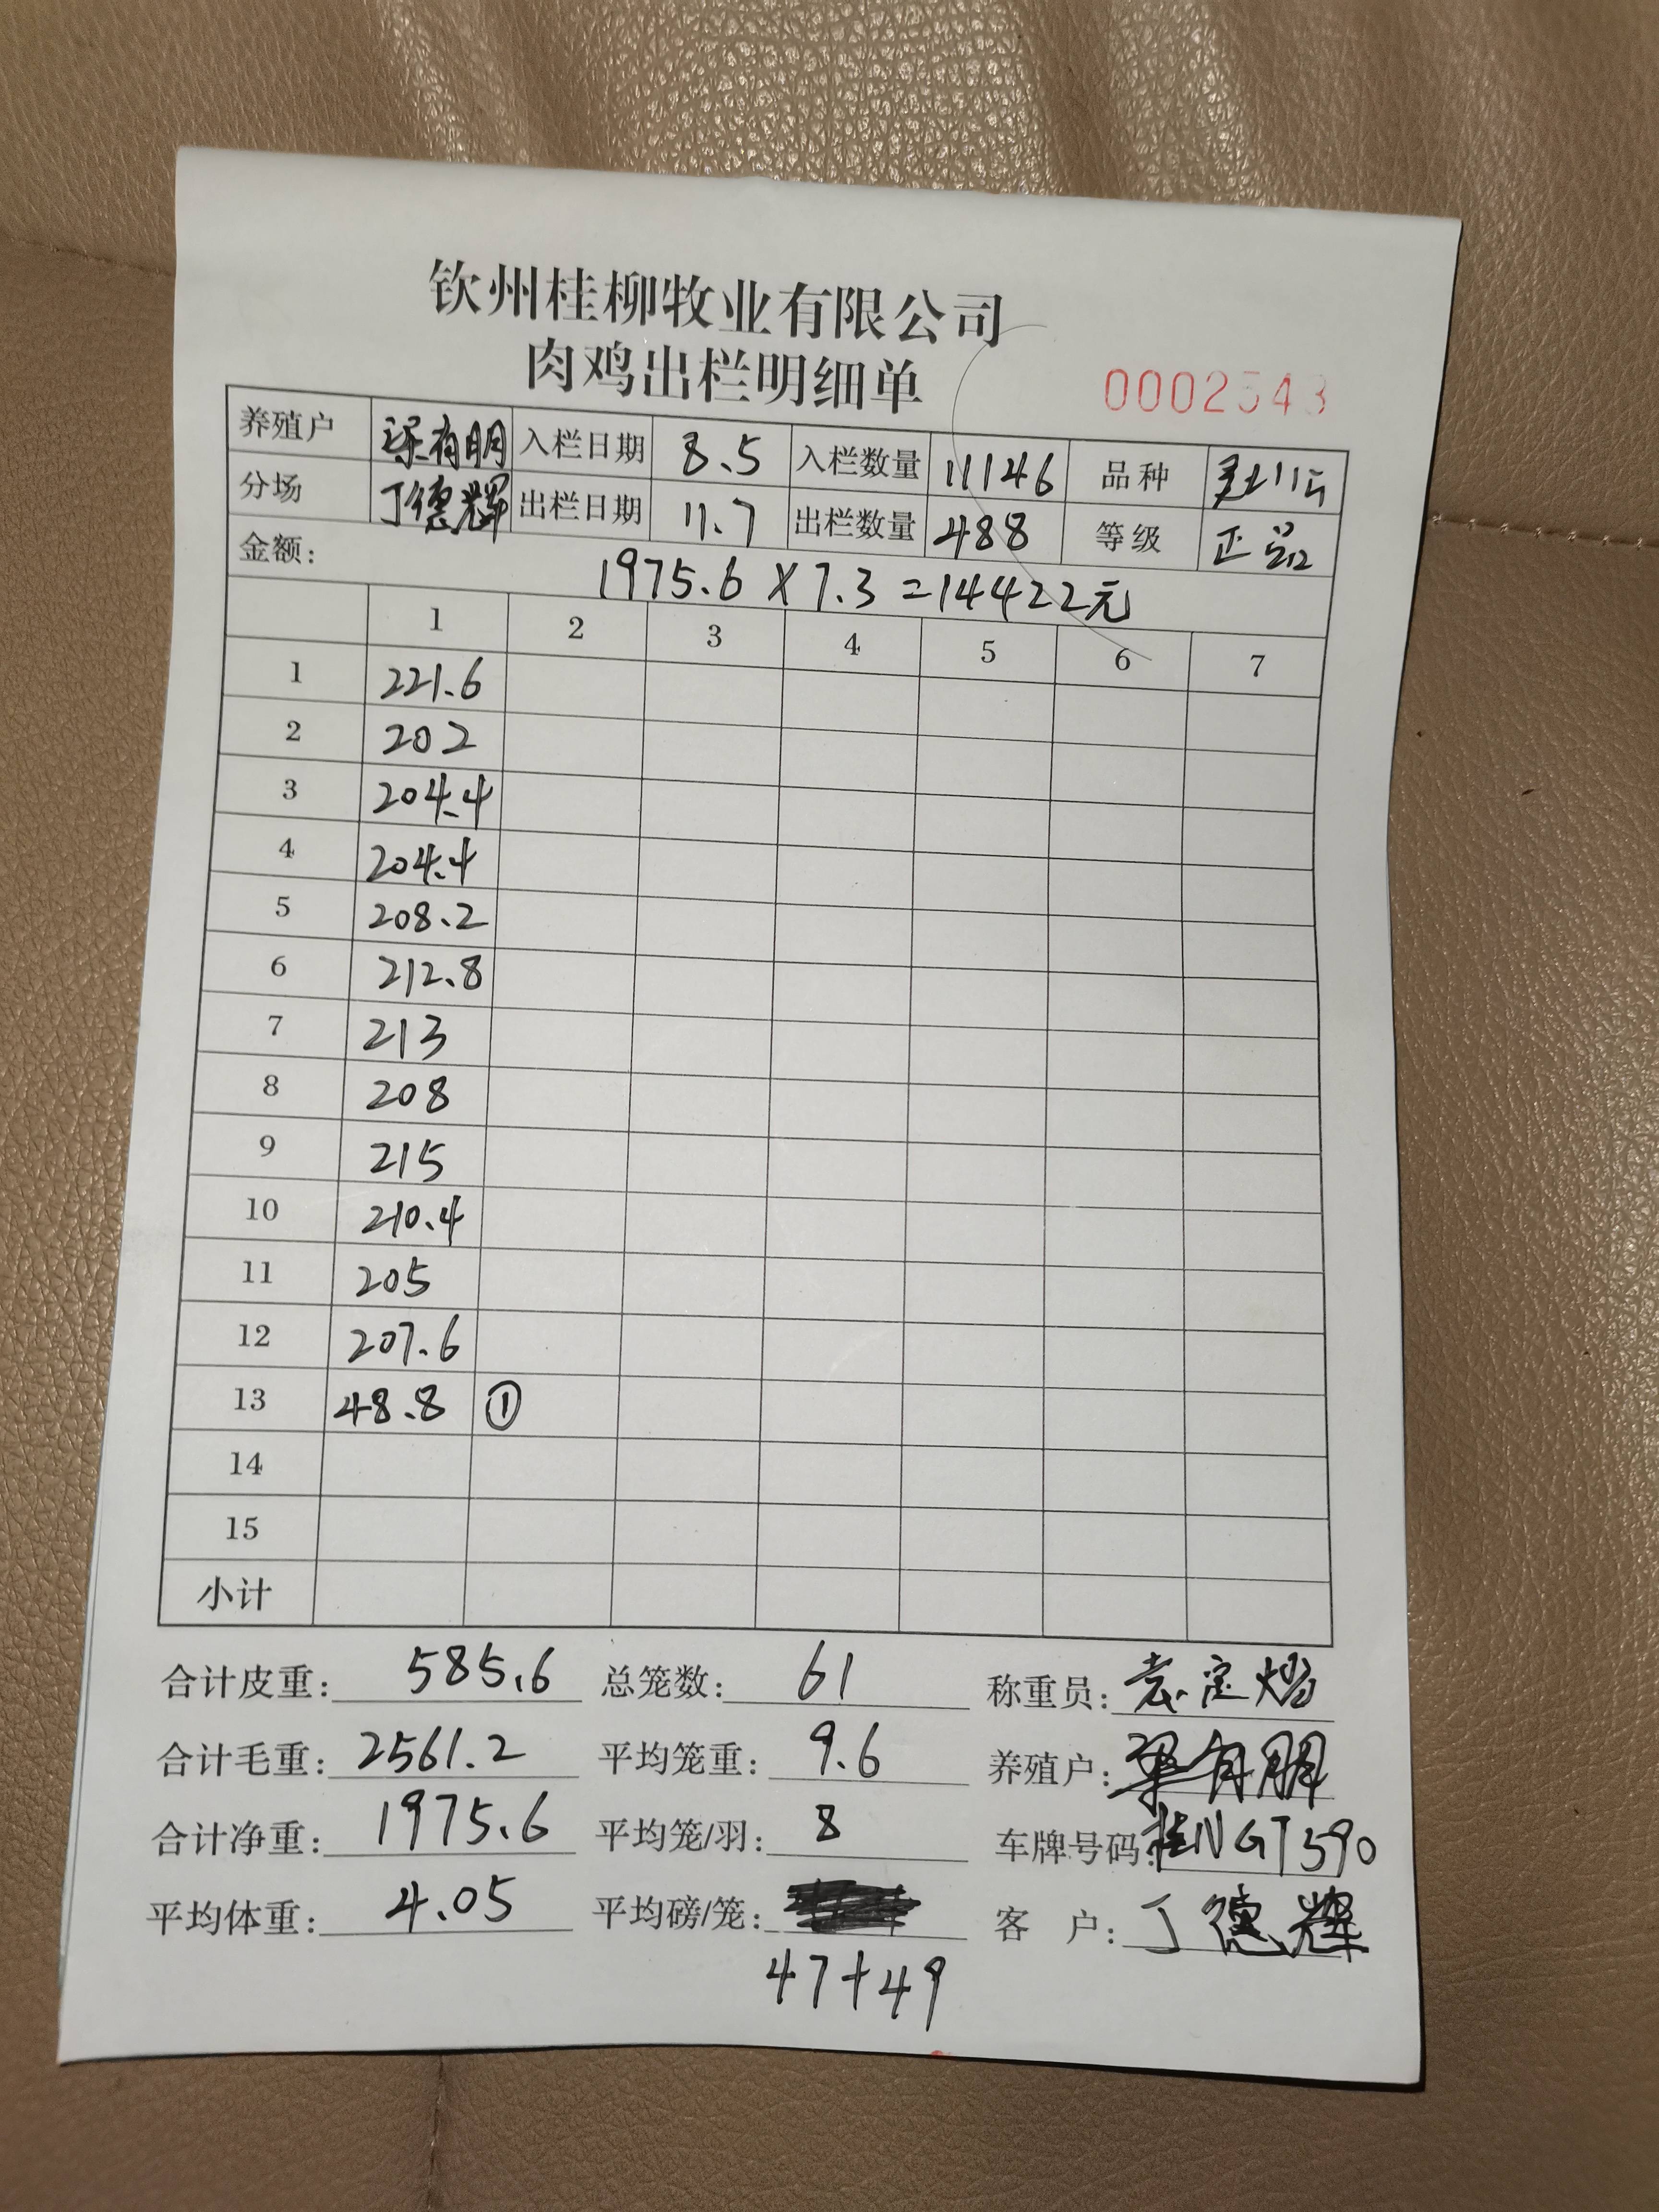 钦州桂柳牧业有限公司
肉鸡出栏明细单
0002543
养殖户 梁有朋 入栏日期 8.5 入栏数量 11146 品种
分场 丁德辉 出栏日期 11.7 出栏数量 488 等级 正品
金额: 1975.6 X 7.3 =14422元
1 2 3 4 5 6 7
1 221.6
2 202
3 204.4
4 204.4
5 208.2
6 212.8
7 213
8 208
9 215
10 210.4
11 205
12 207.6
13 48.8 ①
14
15
小计
合计皮重: 585.6 总笼数: 61 称重员:
合计毛重: 2561.2 平均笼重: 9.6 养殖户: 梁有朋
合计净重: 1975.6 平均笼/羽: 8 车牌号码: 桂NGT590
平均体重: 4.05 平均磅/笼: 客 户: 丁德辉
47+49